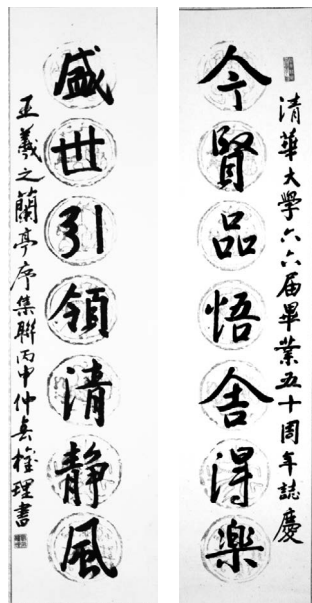 清華大學六六届畢業五十周年誌慶
今賢品悟舍得樂
盛世引領清靜風
王羲之蘭亭序集聯丙申仲春理書